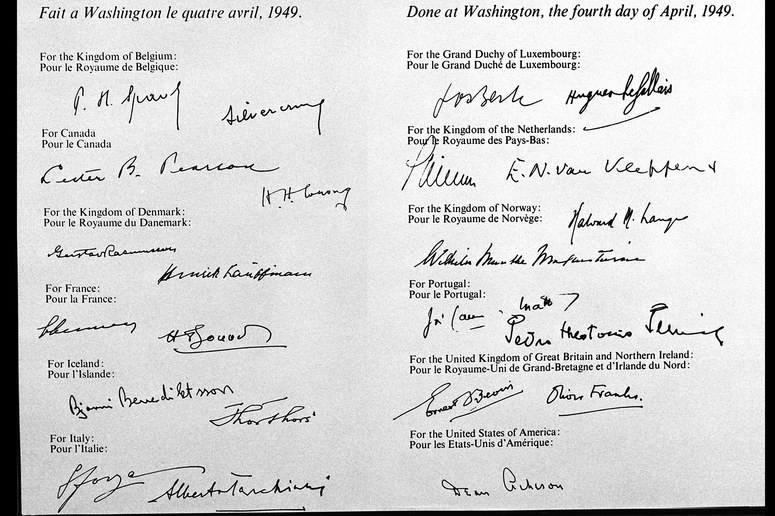 Fait a Washington le quatre avril, 1949.
For the Kingdom of Belgium:
Pour le Royaume de Belgique:
P. H. Spaak
Silvercruys
For Canada
Pour le Canada
Lester B. Pearson
H H Wrong
For the Kingdom of Denmark:
Pour le Royaume du Danemark:
Gustav Rasmussen
Henrik Kauffmann
For France:
Pour la France:
Schuman
H Bonnet
For Iceland:
Pour l'Islande:
Bjarni Benediktsson
Thor Thors
For Italy:
Pour l'Italie:
Sforza
Alberto Tarchiani
Done at Washington, the fourth day of April, 1949.
For the Grand Duchy of Luxembourg:
Pour le Grand Duché de Luxembourg:
Jos Bech
Hugues Le Gallais
For the Kingdom of the Netherlands:
Pour le Royaume des Pays-Bas:
Stikker
E. N. van Kleffens
For the Kingdom of Norway:
Pour le Royaume de Norvège:
Halvard M. Lange
Wilhelm Munthe Morgenstierne
For Portugal:
Pour le Portugal:
José Caeiro da Matta
Pedro Theotonio Pereira
For the United Kingdom of Great Britain and Northern Ireland:
Pour le Royaume-Uni de Grand-Bretagne et d'Irlande du Nord:
Ernest Bevin
Oliver Franks.
For the United States of America:
Pour les Etats-Unis d'Amérique:
Dean Acheson